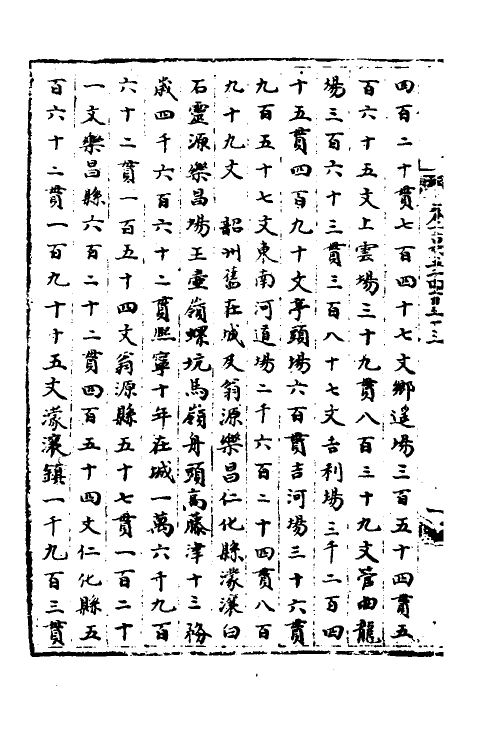 四百二十貫七百四十七文鄉遥場三百五十四貫五
百六十五文上雲場三十九貫八百三十九文管曲龍
場三百六十三貫三百八十七文古利場三千二百四
十五貫四百九十文亭頭場六百貫吉河場三十六貫
九百五十七文東南河道場二千六百二十四貫八百
九十九文 韶州舊在城及翁源樂昌仁化縣濛瀼白
石靈源樂昌場王壷嶺螺坑馬嶺舟頭高藤津十三務
歲四千六百六十二貫熙寧十年在城一萬六千九百
六十二貫一百五十四文翁源縣五十七貫一百二十
一文樂昌縣六百二十二貫四百五十四文仁化縣五
百六十二貫一百九十十五文濛瀼鎮一千九百三貫